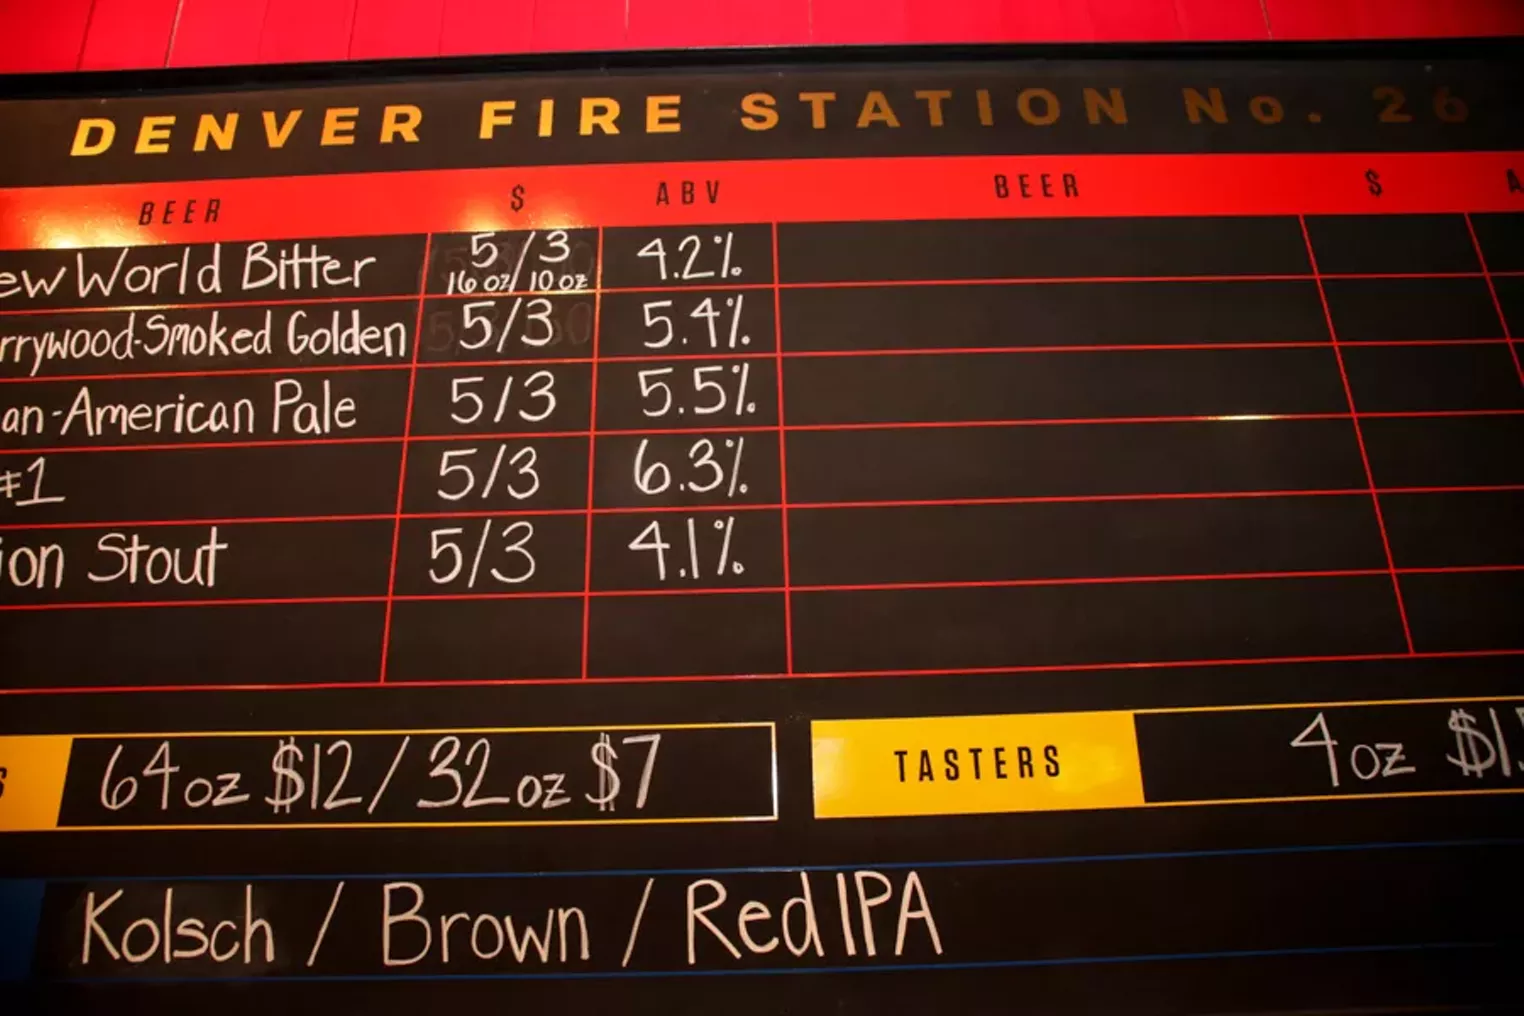 DENVER FIRE STATION No. 26
BEER $ ABV BEER $ A
ew World Bitter 5/3 4.2%
16 oz/10 oz
rrywood-Smoked Golden 5/3 5.4%
an-American Pale 5/3 5.5%
#1 5/3 6.3%
ion Stout 5/3 4.1%
S 64 oz $12/32 oz $7 TASTERS 4 oz $1.
Kolsch / Brown / Red IPA